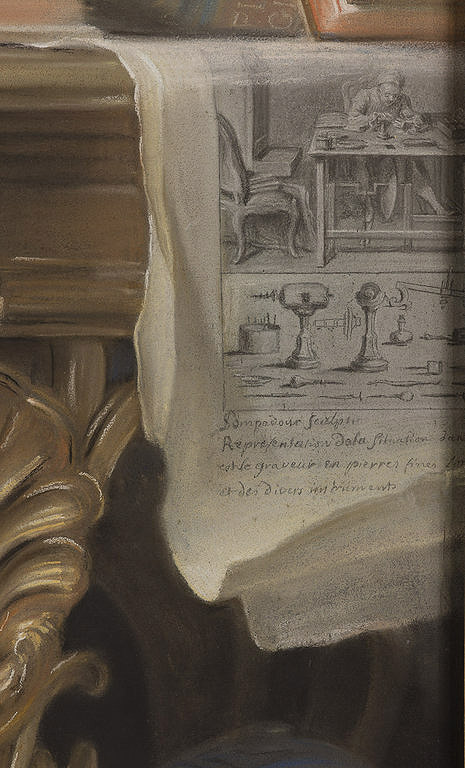 PI
GI
Pompadour sculpsit
Representation de la situation dans
est le graveur en pierres fines
et des divers instruments